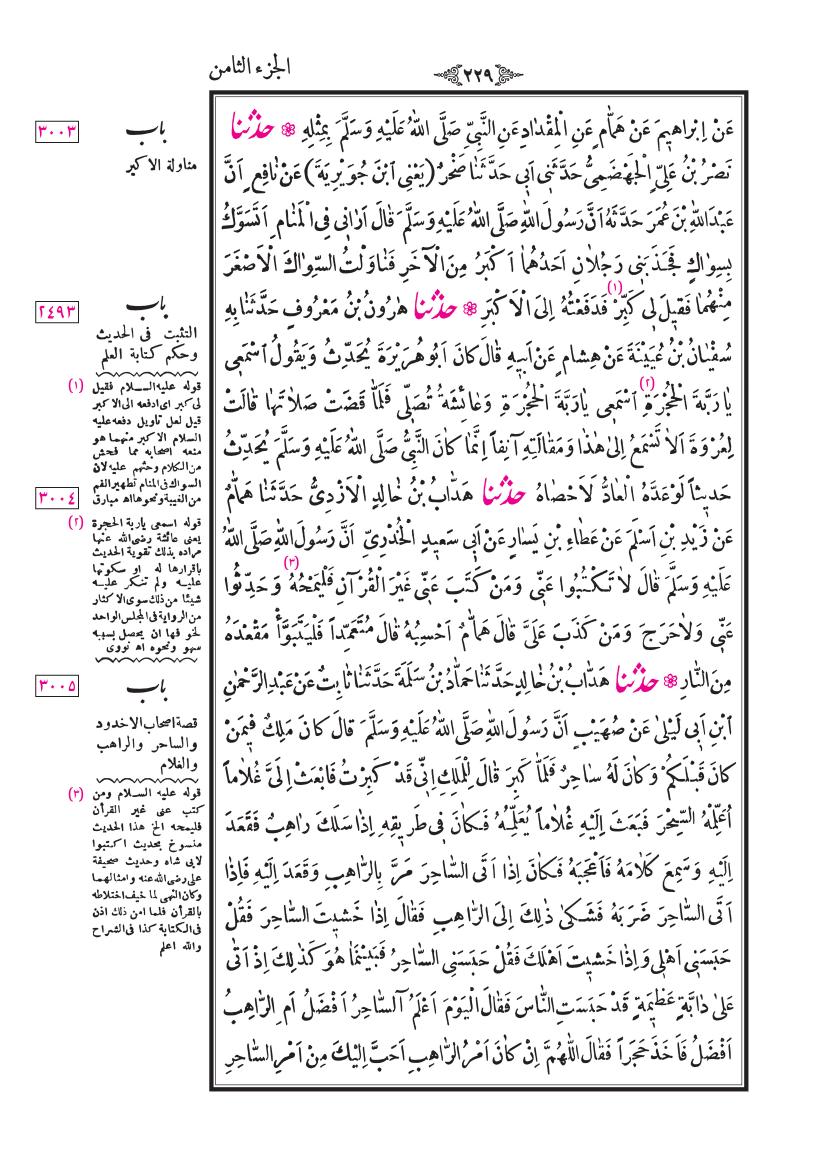 ٢٢٩
الجزء الثامن
عَنْ اِبْراهيمَ عَنْ هَمَّامٍ عَنِ الْمِقْدَادِ عَنِ النَّبِيِّ صَلَّى اللهُ عَلَيْهِ وَسَلَّمَ بِمِثْلِهِ ❁ حدثنا
نَصْرُ بْنُ عَلِيٍّ الْجَهْضَمِيُّ حَدَّثَنِي اَبِي حَدَّثَنَا صَخْرٌ (يَعْنِي ابْنَ جُوَيْرِيَةَ) عَنْ نَافِعٍ اَنَّ
عَبْدَ اللهِ بْنَ عُمَرَ حَدَّثَهُ اَنَّ رَسُولَ اللهِ صَلَّى اللهُ عَلَيْهِ وَسَلَّمَ قَالَ اَرَانِي فِي الْمَنَامِ اَتَسَوَّكُ
بِسِوَاكٍ فَجَذَبَنِي رَجُلَانِ اَحَدُهُمَا اَكْبَرُ مِنَ الْآخَرِ فَنَاوَلْتُ السِّوَاكَ الْاَصْغَرَ
مِنْهُمَا فَقِيلَ لِي كَبِّرْ (١) فَدَفَعْتُهُ اِلَى الْاَكْبَرِ ❁ حدثنا هٰرُونُ بْنُ مَعْرُوفٍ حَدَّثَنَا بِهِ
سُفْيَانُ بْنُ عُيَيْنَةَ عَنْ هِشَامٍ عَنْ اَبِيهِ قَالَ كَانَ اَبُو هُرَيْرَةَ يُحَدِّثُ وَيَقُولُ اسْمَعِي
يَا رَبَّةَ الْحُجْرَةِ (٢) اسْمَعِي يَا رَبَّةَ الْحُجْرَةِ وَعَائِشَةُ تُصَلِّي فَلَمَّا قَضَتْ صَلَاتَهَا قَالَتْ
لِعُرْوَةَ اَلَا تَسْمَعُ اِلَى هٰذَا وَمَقَالَتِهِ آنِفاً اِنَّمَا كَانَ النَّبِيُّ صَلَّى اللهُ عَلَيْهِ وَسَلَّمَ يُحَدِّثُ
حَدِيثاً لَوْ عَدَّهُ الْعَادُّ لَاَحْصَاهُ حدثنا هَدَّابُ بْنُ خَالِدٍ الْاَزْدِيُّ حَدَّثَنَا هَمَّامٌ
عَنْ زَيْدِ بْنِ اَسْلَمَ عَنْ عَطَاءِ بْنِ يَسَارٍ عَنْ اَبِي سَعِيدٍ الْخُدْرِيِّ اَنَّ رَسُولَ اللهِ صَلَّى اللهُ
عَلَيْهِ وَسَلَّمَ قَالَ لَا تَكْتُبُوا عَنِّي وَمَنْ كَتَبَ عَنِّي غَيْرَ الْقُرْآنِ فَلْيَمْحُهُ (٣) وَحَدِّثُوا
عَنِّي وَلَا حَرَجَ وَمَنْ كَذَبَ عَلَيَّ قَالَ هَمَّامٌ اَحْسِبُهُ قَالَ مُتَعَمِّداً فَلْيَتَبَوَّأْ مَقْعَدَهُ
مِنَ النَّارِ ❁ حدثنا هَدَّابُ بْنُ خَالِدٍ حَدَّثَنَا حَمَّادُ بْنُ سَلَمَةَ حَدَّثَنَا ثَابِتٌ عَنْ عَبْدِ الرَّحْمٰنِ
ابْنِ اَبِي لَيْلَى عَنْ صُهَيْبٍ اَنَّ رَسُولَ اللهِ صَلَّى اللهُ عَلَيْهِ وَسَلَّمَ قَالَ كَانَ مَلِكٌ فِيمَنْ
كَانَ قَبْلَكُمْ وَكَانَ لَهُ سَاحِرٌ فَلَمَّا كَبِرَ قَالَ لِلْمَلِكِ اِنِّي قَدْ كَبِرْتُ فَابْعَثْ اِلَيَّ غُلَاماً
اُعَلِّمْهُ السِّحْرَ فَبَعَثَ اِلَيْهِ غُلَاماً يُعَلِّمُهُ فَكَانَ فِي طَرِيقِهِ اِذَا سَلَكَ رَاهِبٌ فَقَعَدَ
اِلَيْهِ وَسَمِعَ كَلَامَهُ فَاَعْجَبَهُ فَكَانَ اِذَا اَتَى السَّاحِرَ مَرَّ بِالرَّاهِبِ وَقَعَدَ اِلَيْهِ فَاِذَا
اَتَى السَّاحِرَ ضَرَبَهُ فَشَكَى ذٰلِكَ اِلَى الرَّاهِبِ فَقَالَ اِذَا خَشِيتَ السَّاحِرَ فَقُلْ
حَبَسَنِي اَهْلِي وَاِذَا خَشِيتَ اَهْلَكَ فَقُلْ حَبَسَنِي السَّاحِرُ فَبَيْنَمَا هُوَ كَذٰلِكَ اِذْ اَتَى
عَلَى دَابَّةٍ عَظِيمَةٍ قَدْ حَبَسَتِ النَّاسَ فَقَالَ الْيَوْمَ اَعْلَمُ آلسَّاحِرُ اَفْضَلُ اَمِ الرَّاهِبُ
اَفْضَلُ فَاَخَذَ حَجَراً فَقَالَ اللّٰهُمَّ اِنْ كَانَ اَمْرُ الرَّاهِبِ اَحَبَّ اِلَيْكَ مِنْ اَمْرِ السَّاحِرِ
باب
٣٠٠٣
مناولة الاكبر
باب
٢٤٩٣
التثبت فى الحديث
وحكم كتابة العلم
(١) قوله عليه السلام فقيل
لى كبر اى ادفعه الى الاكبر
قيل لعل تاويل دفعه عليه
السلام الاكبر منهما هو
منعه اصحابه مما فحش
من الكلام وحثهم عليه لان
السواك فى المنام تطهير الفم
من الغيبة ونحوها اه مبارق
٣٠٠٤
(٢) قوله اسمعى ياربة الحجرة
يعنى عائشة رضى الله عنها
مراده بذلك تقوية الحديث
باقرارها له او سكوتها
عليه ولم تنكر عليه
شيئا من ذلك سوى الاكثار
من الرواية فى المجلس الواحد
لخوفها ان يحصل بسببه
سهو ونحوه اه نووى
باب
٣٠٠٥
قصة اصحاب الاخدود
والساحر والراهب
والغلام
(٣) قوله عليه السلام ومن
كتب عنى غير القرأن
فليمحه الخ هذا الحديث
منسوخ بحديث اكتبوا
لابى شاه وحديث صحيفة
على رضى الله عنه وامثالهما
وكان النهى لما خيف اختلاطه
بالقرأن فلما امن ذلك اذن
فى الكتابة كذا فى الشراح
والله اعلم